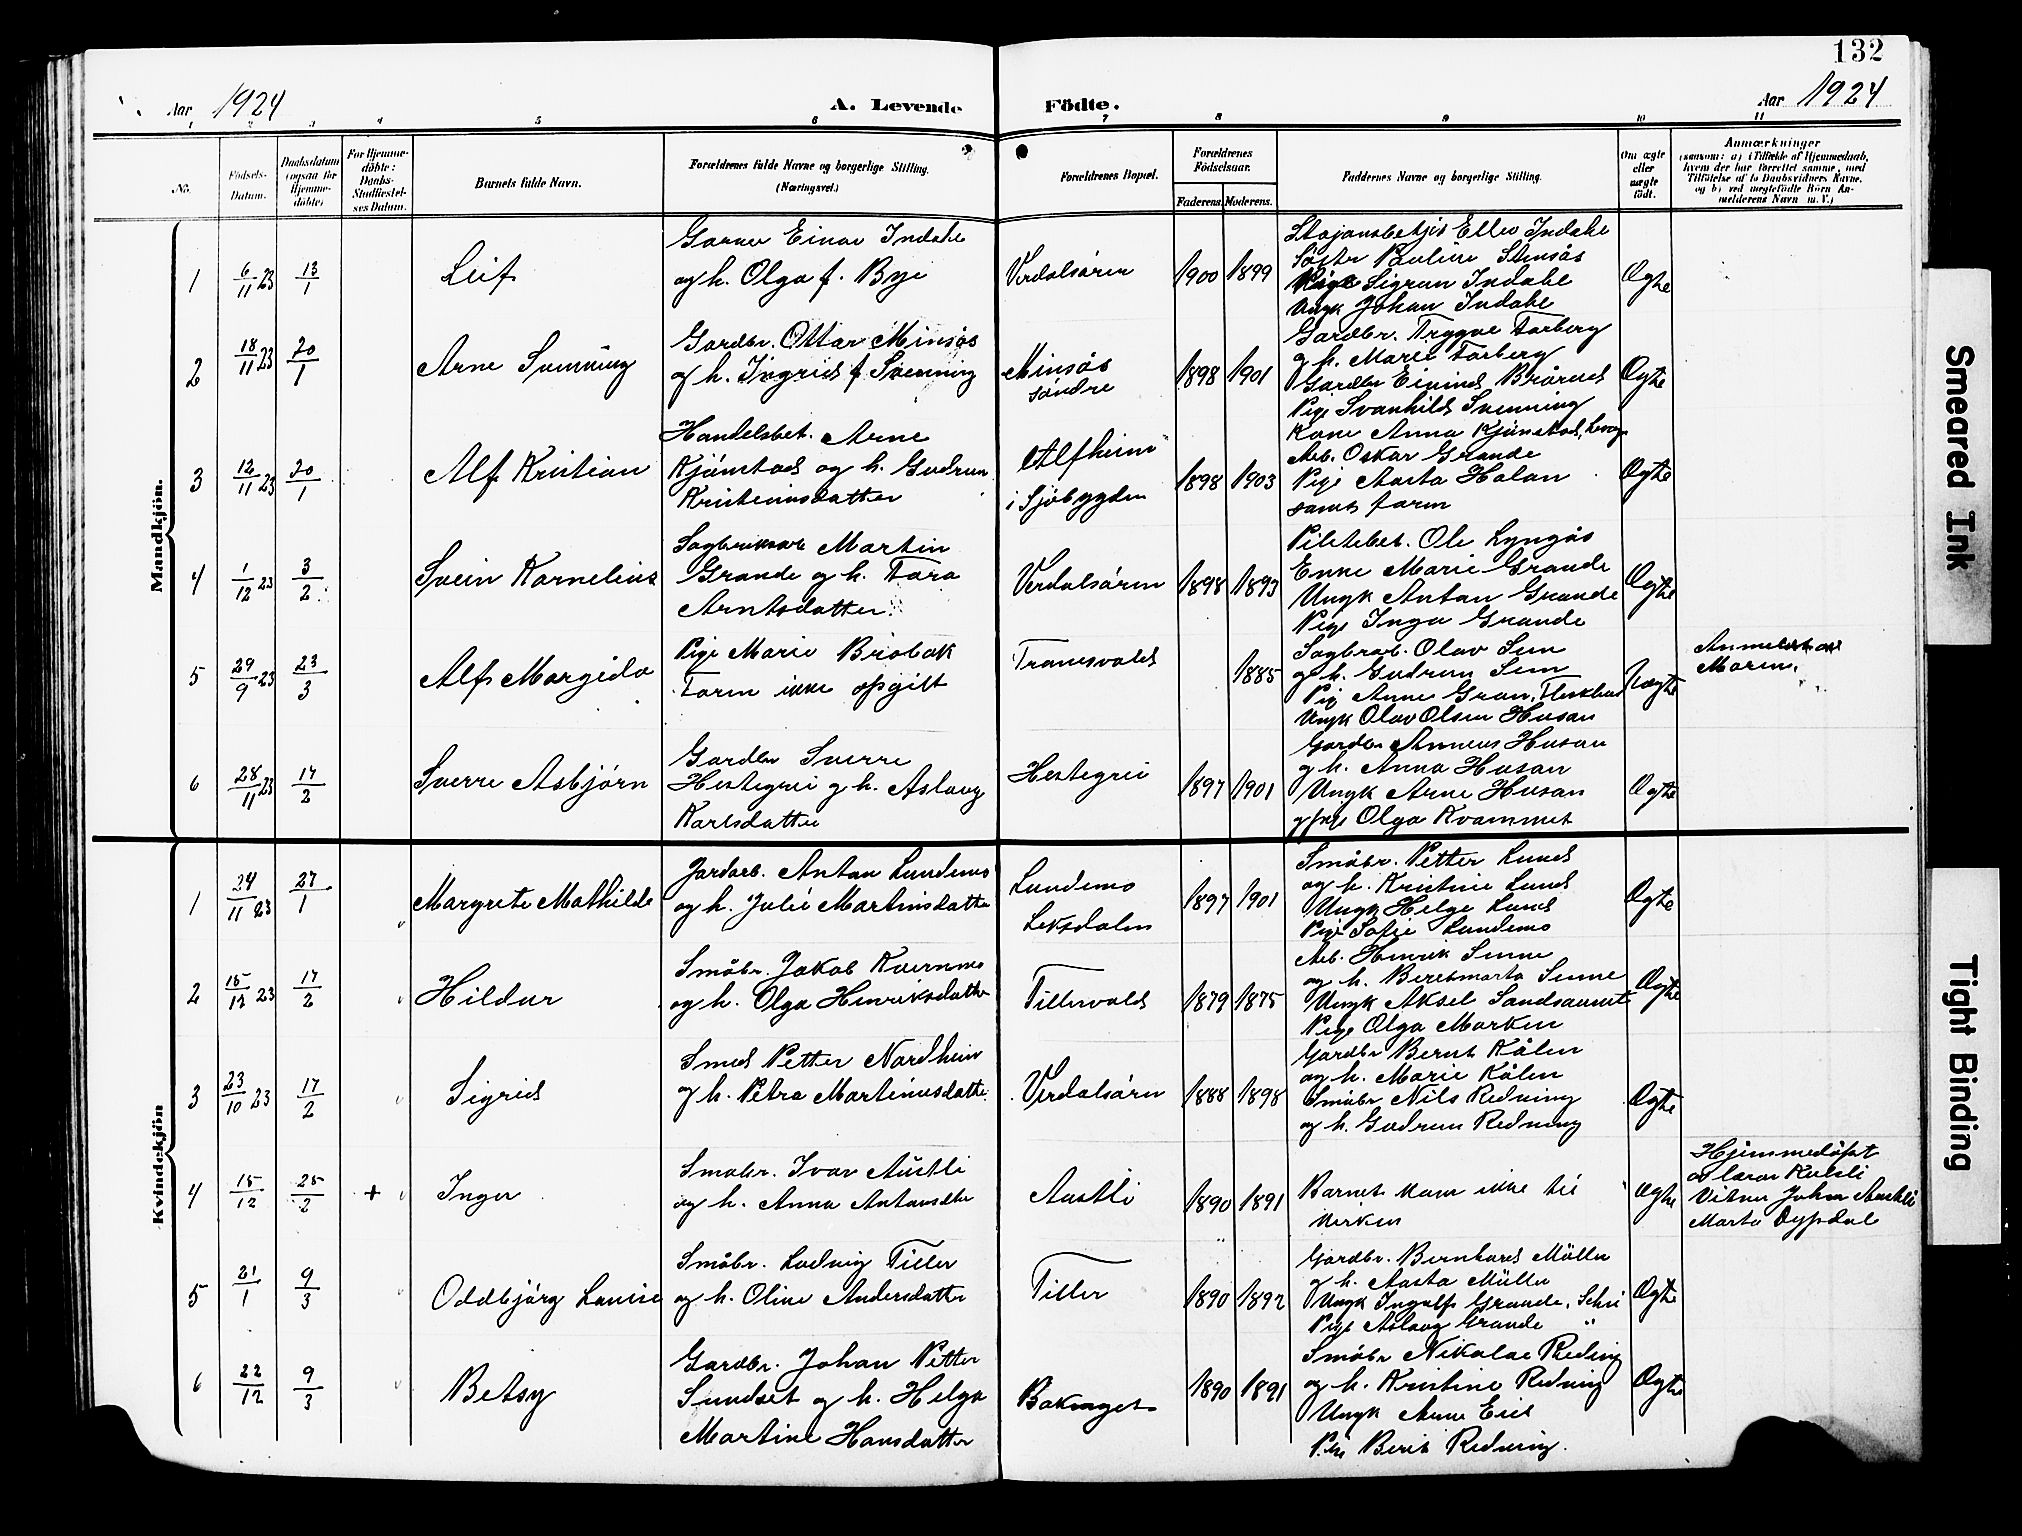 132
Aar 1924
A. Levende
Födte.
Aar 1924
1 2 3 4 5 6 7 8 9 10 11
No.
Födsels-
Datum.
Daabsdatum
(ogsaa for
Hjemme-
döbte)
For Hjemme-
döbte:
Daabs-
Stadfæstel-
ses Datum.
Barnets fulde Navn.
Forældrenes fulde Navne og borgerlige Stilling.
(Næringsvei.)
Forældrenes Bopæl.
Forældrenes
Födselsaar.
Faderens. Moderens.
Faddernes Navne og borgerlige Stilling.
Om ægte
eller
uægte
födt.
Anmærkninger
(saasom: a) i Tilfælde af Hjemmedaab,
hvem der har forrettet samme, med
Tilföielse af to Daabsvidners Navne,
og b) ved uægtefödte Börn An-
melderens Navn m. V.)
Mandkjön.
1 6/11 23 13/1 Leif
Garver Einar Indahl
og h. Olga f. Bye
Verdalsören 1900 1899
Ellev Indahl
Pauline Stensös
Pige Sigrun Indahl
Ungk Johan Indahl
Ægte
2 18/11 23 20/1 Arne Svenning
Gardbr. Ottar Minsös
og h. Ingrid f Svenning
Minsös
söndre
1898 1901
Gardbr. Trygve Forberg
og h. Marie Forberg
Gardbr Eivind Brörud
Pige Svanhild Svenning
Ægte
3 12/11 23 20/1 Alf Kristian
Handelsbet. Arne
Kjönstad og h. Gudrun
Kristensdatter
Alfheim
i Sjöbygden
1898 1903
Kone Anna Kjönstad, Levg.
Arb. Oskar Grande
Pige Aasta Halan
samt farm
Ægte
4 1/12 23 3/2 Svein Kornelius
Sagbruksarb Martin
Grande og h. Tora
Arntsdatter
Verdalsören 1898 1893
Ole Lyngås
Enke Marie Grande
Ungk Anton Grande
Pige Inga Grande
Ægte
5 29/9 23 23/3 Alf Margido
Pige Marie Brobak
Farm ikke opgitt
Tronesvald 1885
Sagbrarb. Olav Sem
og h. Gudrun Sem
Pig Anne Gran,
Ungk Olav Olsen Husan
Uægte
Anmeldt av
Moren.
6 28/11 23 17/2 Sverre Asbjörn
Gardbr Sverre
Hestegrei og h. Aslaug
Karlsdatter
Hestegrei 1897 1901
Gardbr Anneus Husan
og h. Anna Husan
Ungk Arne Husan
og pige Olga Kvammet
Ægte
Kvindekjön
1 24/11 23 27/1 Margrete Mathilde
Jordarb. Anton Lundemo
og h. Julie Martinsdatter
Lundemo
Leksdalen
1897 1901
Småbr. Petter Lund
og h. Kristine Lund
Ungk Helge Lund
Pige Sofie Lundemo
Ægte
2 15/12 23 17/2 Hildur
Småbr. Jakob Kvernmo
og h. Olga Henriksdatter
Tillervald 1879 1875
Arb. Henrik Senne
og h. Beretmarta Senne
Ungk Aksel Sandsaunet
Pige Olga Marken
Ægte
3 23/10 23 17/2 Sigrid
Smed Petter Nordheim
og h. Petra Martinusdatter
Verdalsören 1888 1898
Gardbr Bernt Kålen
og h. Marie Kålen
Småbr Nils Redning
og h. Gudrun Redning
Ægte
4 15/12 25/2 + Inger
Småbr. Ivar Austli
og h. Anna Antonsdtr
Austli 1890 1891
Barnet kom ikke til
kirken
Ægte
Hjemmedöpt
av lærar Kulsli
Vitner John Austli
Marta Dyrdal
5 21/1 9/3 Oddbjörg Louise
Småbr. Ludvig Tiller
og h. Oline Andersdatter
Tiller 1890 1892
Gardbr. Bernhard Müller
og h. Aasta Müller
Ungk Ingolf Grande,
Pige Aslaug Grande "
Ægte
6 22/12 9/3 Betsy
Gardbr. Johan Petter
Sundset og h. Helga
Martine Hansdatter
1890 1891
Småbr Nikolae Redning
og h. Kristine Redning
Ungk Arne Eid
Pige Berit Redning.
Ægte
Smeared Ink
Tight Binding